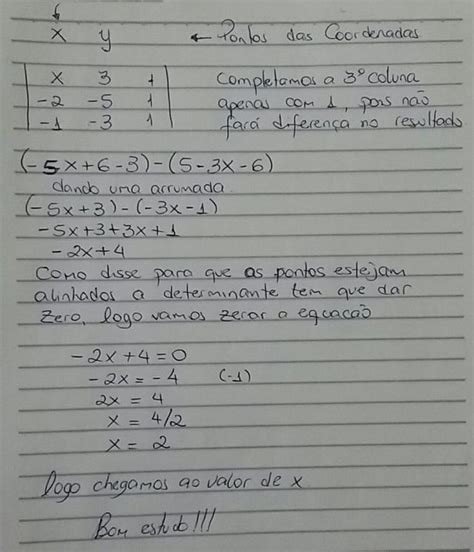 x y ← Pontos das Coordenadas
x 3 1 Completamos a 3º coluna
-2 -5 1 apenas com 1, pois não
-1 -3 1 fará diferença no resultado
(-5x+6-3)-(5-3x-6)
dando uma arrumada.
(-5x+3)-(-3x-1)
-5x+3+3x+1
-2x+4
Como disse para que os pontos estejam
alinhados a determinante tem que dar
zero, logo vamos zerar a equação
-2x+4=0
-2x=-4 (-1)
2x = 4
x = 4/2
x = 2
logo chegamos ao valor de x
Bom estudo!!!